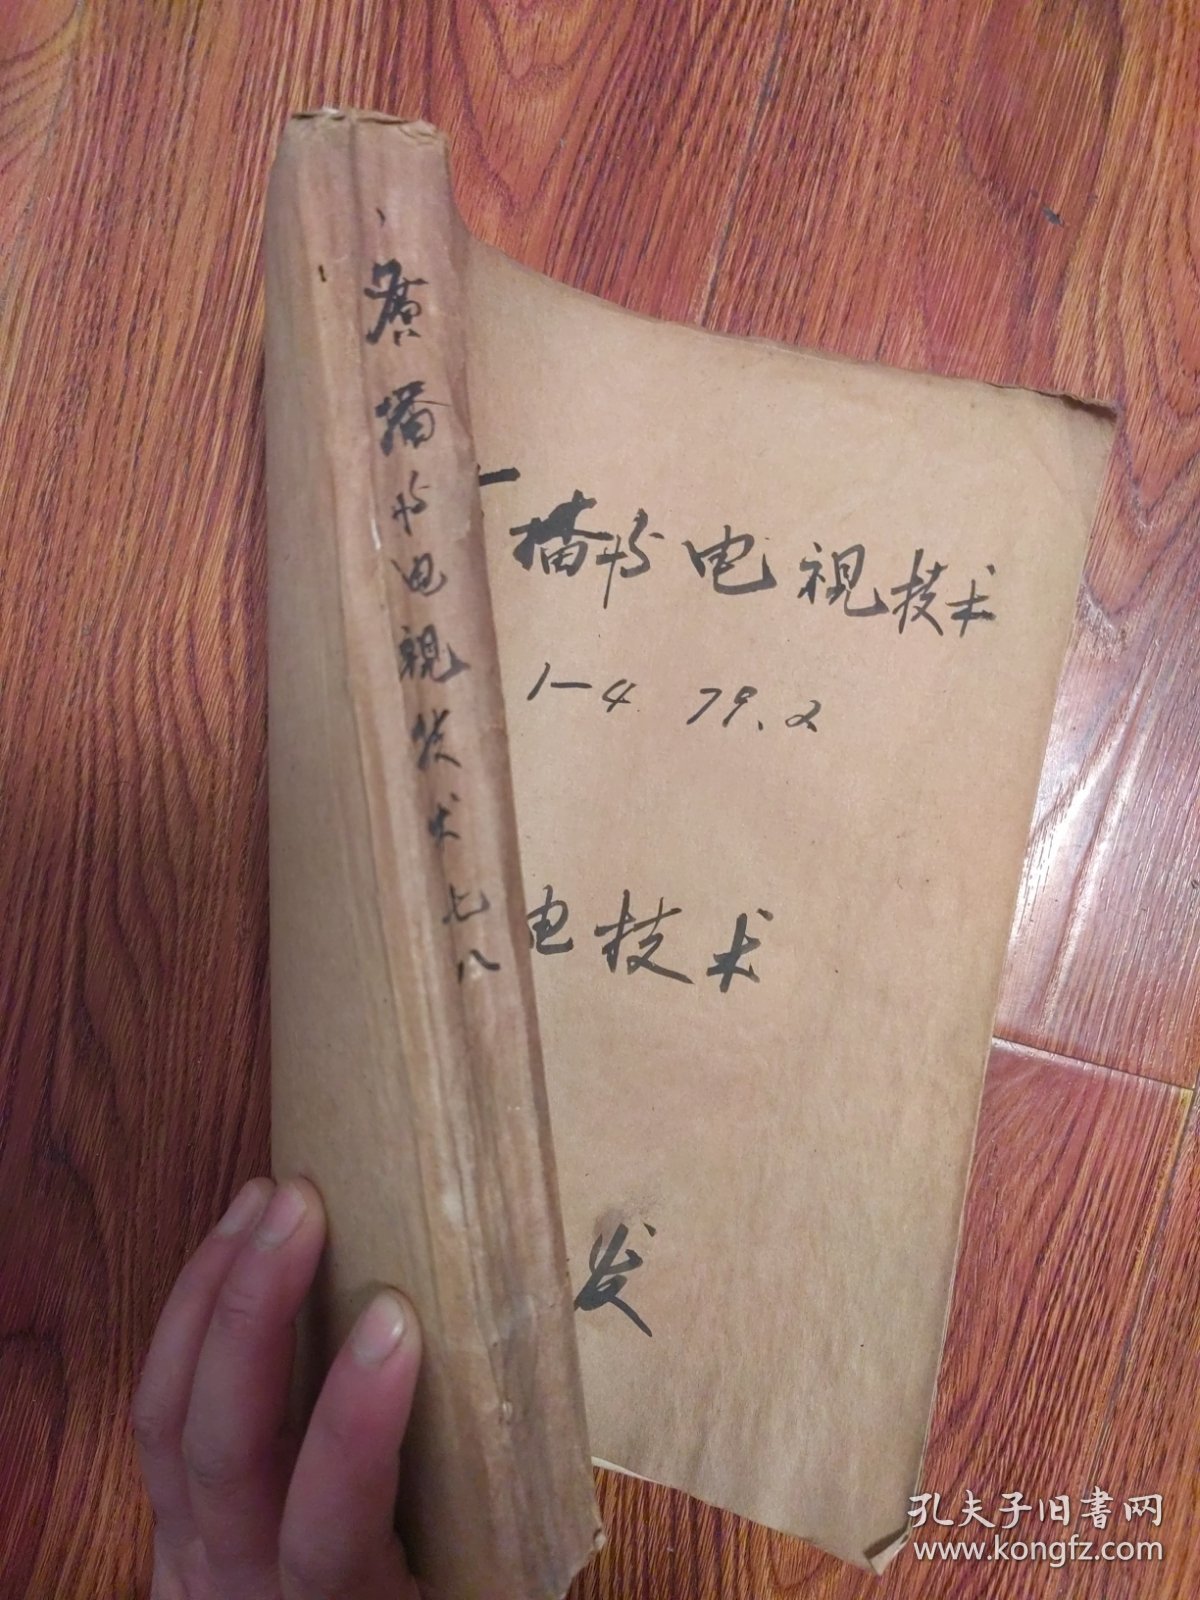 廣播与电视技术七八
广播与电视技术
1—4 79.2
电技术
发
孔夫子旧書网
www.kongfz.com